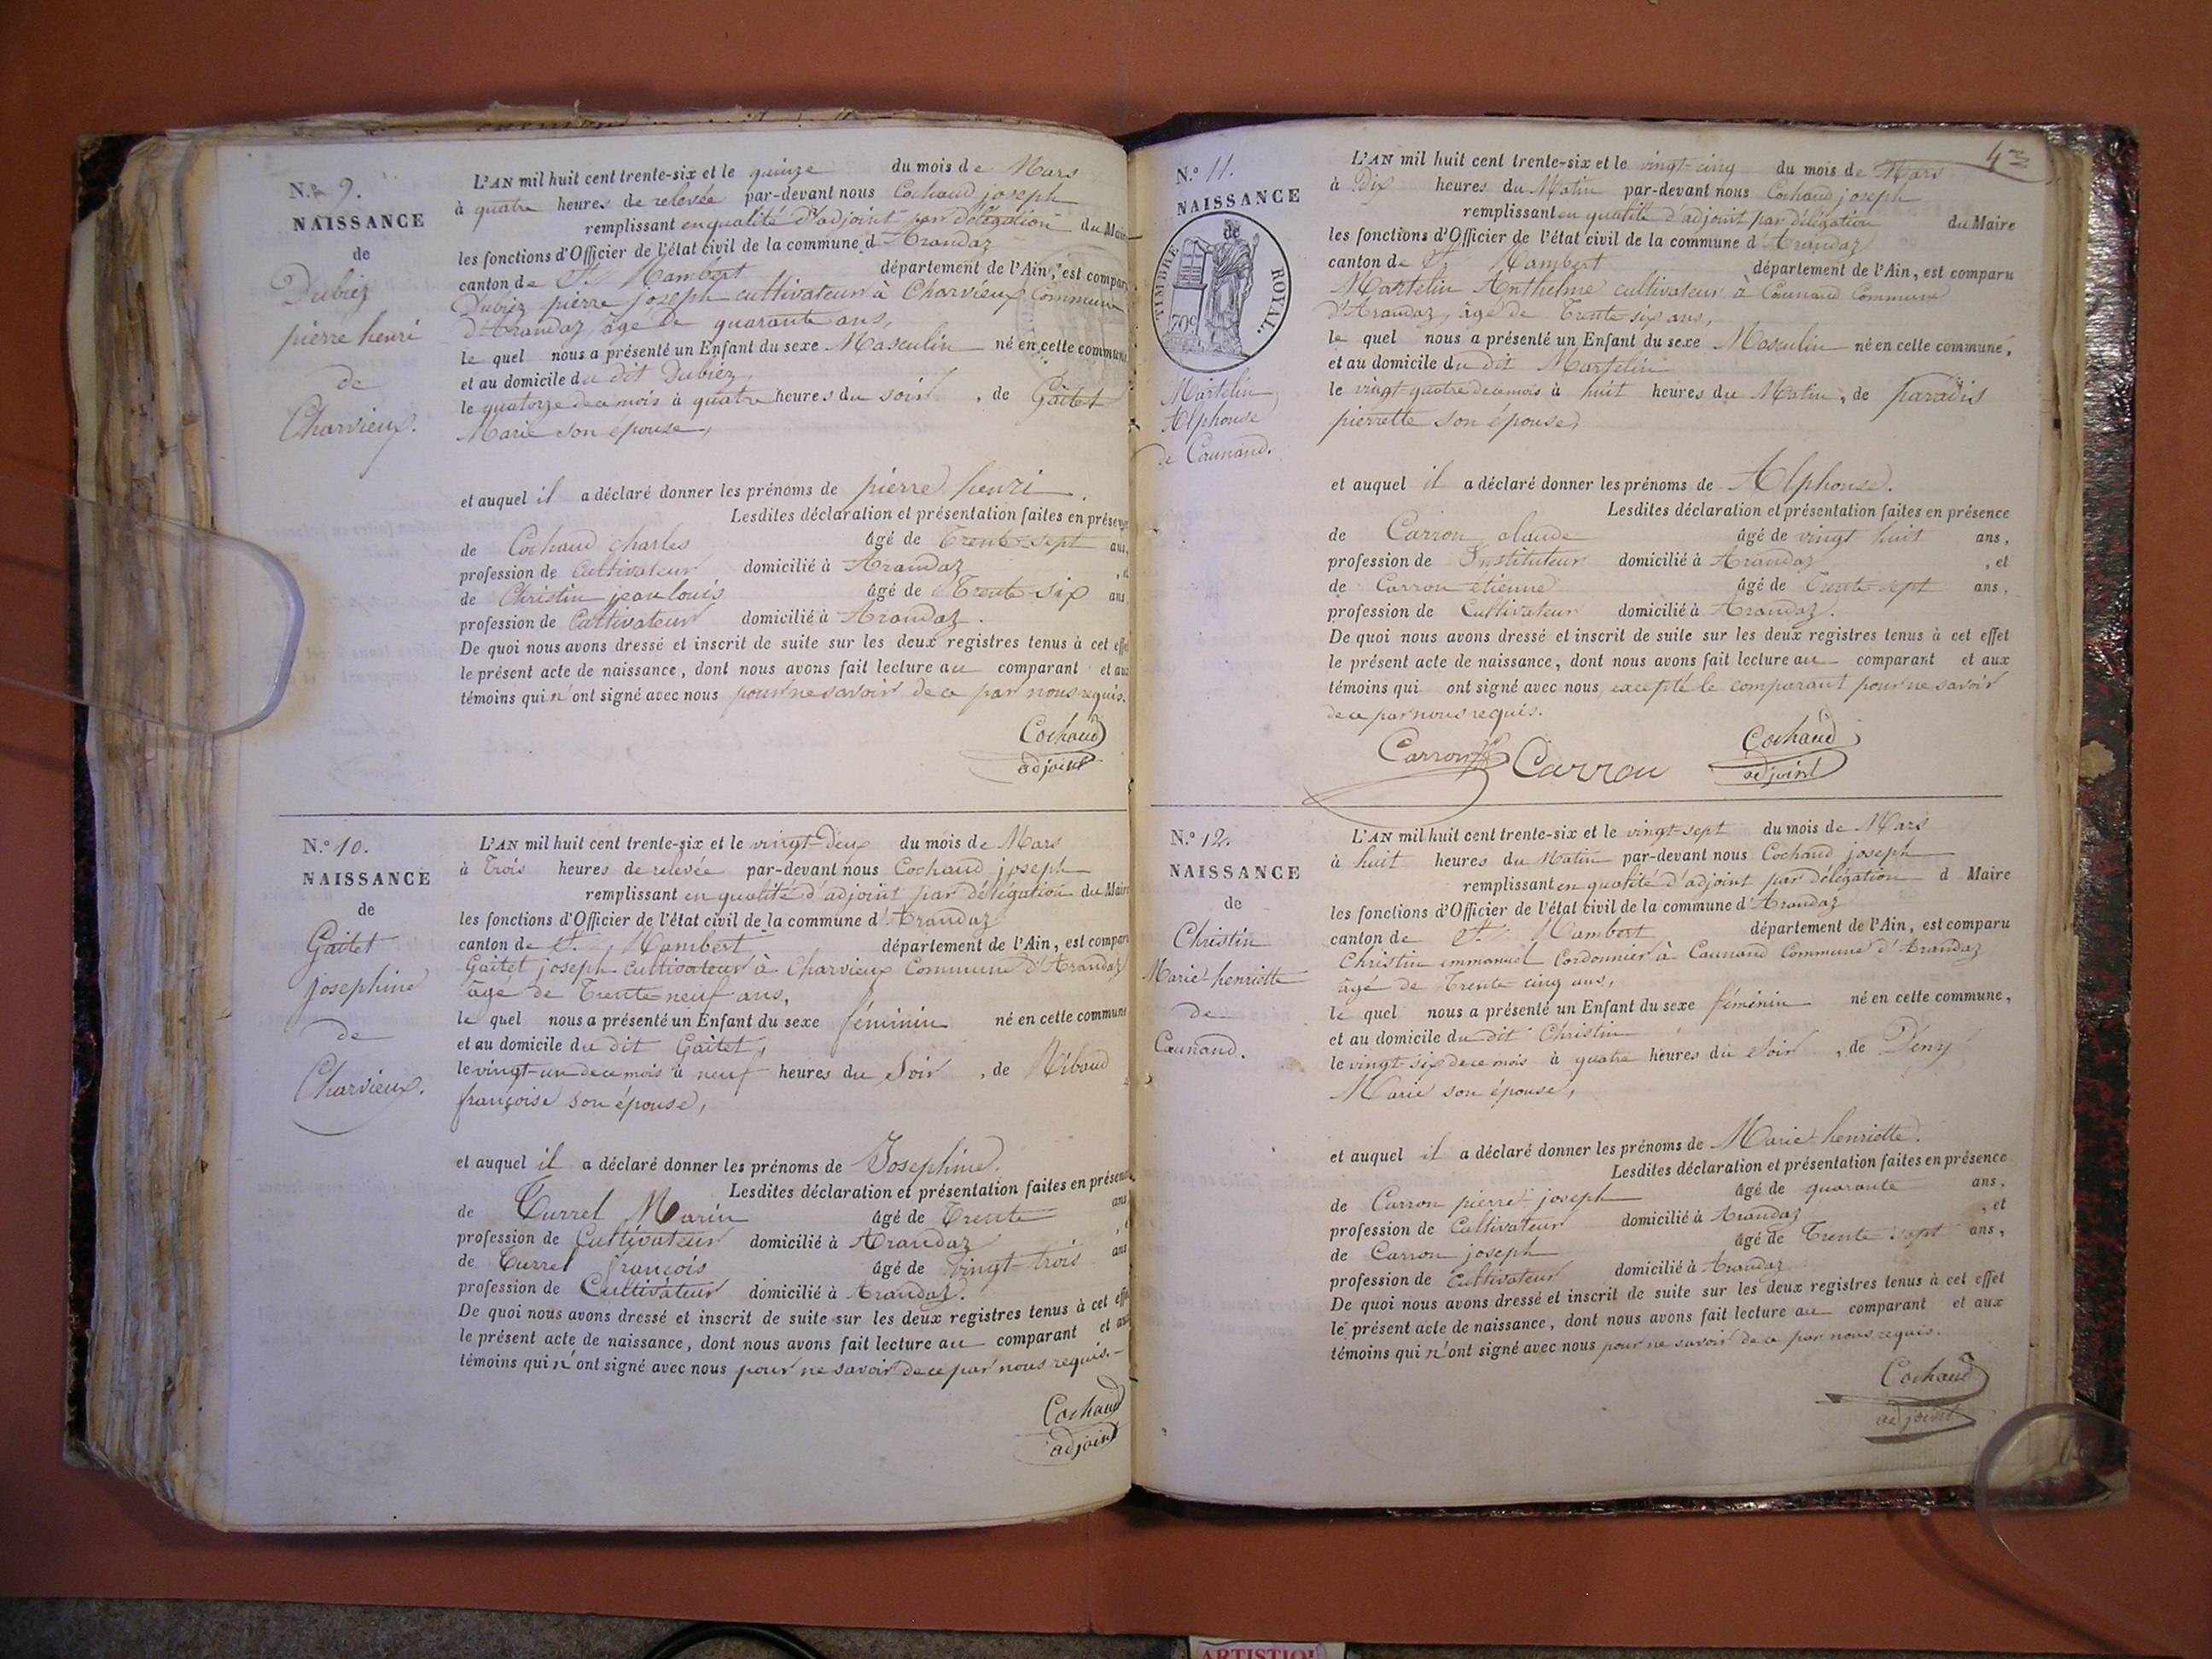 N.o 9.
NAISSANCE
de
Dubiez
pierre henri
de
Charvieux.
L'AN mil huit cent trente-six et le quinze du mois de Mars
à quatre heures de relevée par-devant nous Cochaud joseph
remplissant en qualité d'adjoint par délégation du Maire
les fonctions d'Officier de l'état civil de la commune d'Arandaz
canton de St. Rambert département de l'Ain, est compar
Dubiez pierre joseph cultivateur à Charvieux Commune
d'Arandaz, âgé de quarante ans,
le quel nous a présenté un Enfant du sexe Masculin né en cette commune
et au domicile du dit Dubiez
le quatorze de ce mois à quatre heures du soir, de Gaitet
Marie son épouse,
et auquel il a déclaré donner les prénoms de pierre henri.
Lesdites déclaration et présentation faites en présence
de Cochaud charles âgé de Trente-sept ans,
profession de Cultivateur domicilié à Arandaz, et
de Christin jean louis âgé de Trente-six ans
profession de Cultivateur domicilié à Arandaz.
De quoi nous avons dressé et inscrit de suite sur les deux registres tenus à cet effet
le présent acte de naissance, dont nous avons fait lecture au comparant et aux
témoins qui n'ont signé avec nous pour ne savoir de ce par nous requis.
Cochaud
adjoint
N.o 10.
NAISSANCE
de
Gaitet
josephine
de
Charvieux.
L'AN mil huit cent trente-six et le vingt-deux du mois de Mars
à Trois heures de relevée par-devant nous Cochaud joseph
remplissant en qualité d'adjoint par délégation du Maire
les fonctions d'Officier de l'état civil de la commune d'Arandaz
canton de St. Rambert département de l'Ain, est compar
Gaitet joseph cultivateur à Charvieux Commune d'Arandaz
âgé de Trente neuf ans,
le quel nous a présenté un Enfant du sexe féminin né en cette commune
et au domicile du dit Gaitet,
le vingt-un de ce mois à neuf heures du Soir, de Ribaud
françoise son épouse,
et auquel il a déclaré donner les prénoms de Josephine.
Lesdites déclaration et présentation faites en présence
de Turrel Marin âgé de Trente ans
profession de Cultivateur domicilié à Arandaz, et
de Turrel françois âgé de vingt-trois ans
profession de Cultivateur domicilié à Arandaz.
De quoi nous avons dressé et inscrit de suite sur les deux registres tenus à cet effet
le présent acte de naissance, dont nous avons fait lecture au comparant et aux
témoins qui n'ont signé avec nous pour ne savoir de ce par nous requis.
Cochaud
adjoint
43
N.o 11.
NAISSANCE
de
TIMBRE ROYAL.
70c
Martelin
Alphonse
de Caunand.
L'AN mil huit cent trente-six et le vingt-cinq du mois de Mars
à Dix heures du Matin par-devant nous Cochaud joseph
remplissant en qualité d'adjoint par délégation du Maire
les fonctions d'Officier de l'état civil de la commune d'Arandaz
canton de St. Rambert département de l'Ain, est comparu
Martelin Anthelme cultivateur à Caunand Commune
d'Arandaz, âgé de Trente-six ans,
le quel nous a présenté un Enfant du sexe Masculin né en cette commune,
et au domicile du dit Martelin
le vingt quatre de ce mois à huit heures du Matin, de paradis
pierrette son épouse,
et auquel il a déclaré donner les prénoms de Alphonse.
Lesdites déclaration et présentation faites en présence
de Carron claude âgé de vingt huit ans,
profession de Instituteur domicilié à Arandaz, et
de Carron etienne âgé de Trente-sept ans,
profession de Cultivateur domicilié à Arandaz.
De quoi nous avons dressé et inscrit de suite sur les deux registres tenus à cet effet
le présent acte de naissance, dont nous avons fait lecture au comparant et aux
témoins qui ont signé avec nous, excepté le comparant pour ne savoir
de ce par nous requis.
Carron Carron Cochaud
adjoint
N.o 12.
NAISSANCE
de
Christin
Marie-henriette
de
Caunand.
L'AN mil huit cent trente-six et le vingt-sept du mois de Mars
à huit heures du Matin par-devant nous Cochaud joseph
remplissant en qualité d'adjoint par délégation d Maire
les fonctions d'Officier de l'état civil de la commune d'Arandaz
canton de St. Rambert département de l'Ain, est comparu
Christin emmanuel Cordonnier à Caunand Commune d'Arandaz
âgé de Trente-cinq ans,
le quel nous a présenté un Enfant du sexe féminin né en cette commune,
et au domicile du dit Christin
le vingt-six de ce mois à quatre heures du Soir, de Deny
Marie son épouse,
et auquel il a déclaré donner les prénoms de Marie-henriette.
Lesdites déclaration et présentation faites en présence
de Carron pierre-joseph âgé de quarante ans,
profession de Cultivateur domicilié à Arandaz, et
de Carron joseph âgé de Trente sept ans,
profession de Cultivateur domicilié à Arandaz
De quoi nous avons dressé et inscrit de suite sur les deux registres tenus à cet effet
le présent acte de naissance, dont nous avons fait lecture au comparant et aux
témoins qui n'ont signé avec nous pour ne savoir de ce par nous requis.
Cochaud
adjoint